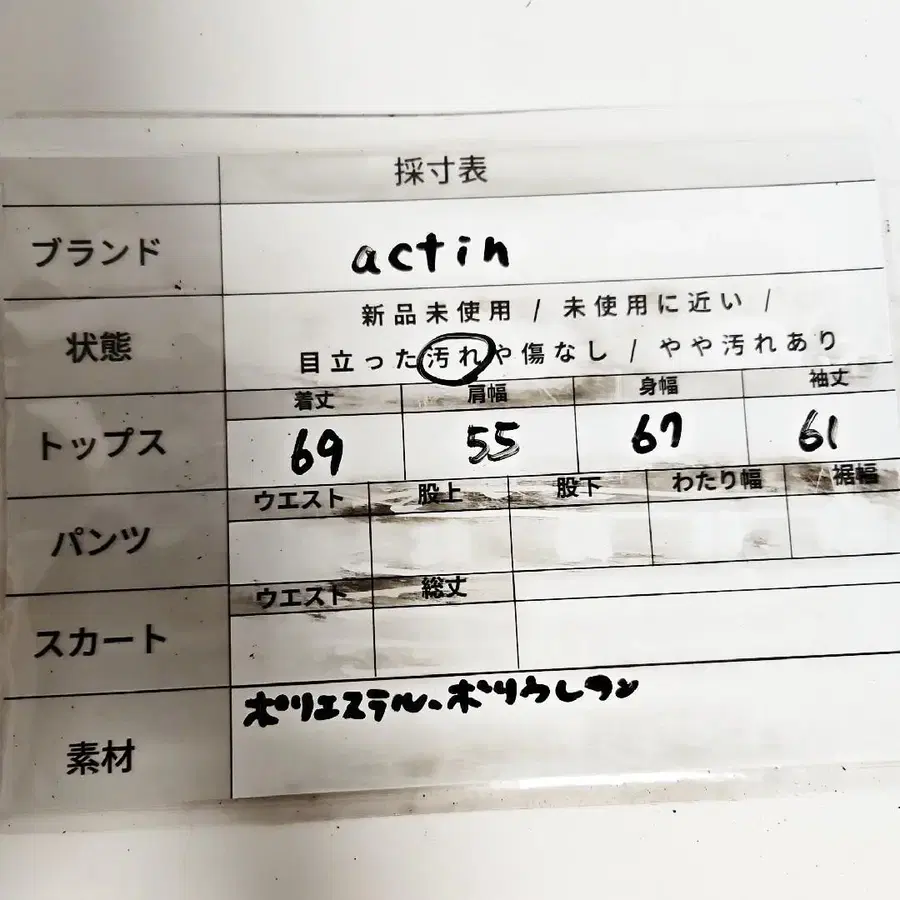 採寸表
ブランド actin
状態 新品未使用 / 未使用に近い /
目立った汚れや傷なし / やや汚れあり
着丈 肩幅 身幅 袖丈
トップス 69 55 67 61
ウエスト 股上 股下 わたり幅 裾幅
パンツ
ウエスト 総丈
スカート
素材 ポリエステル、ポリウレタン